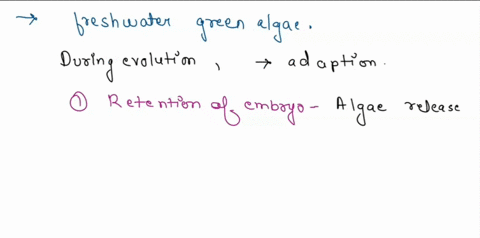 → freshwater green algae.
During evolution, → adaption.
① Retention of embryo - Algae release